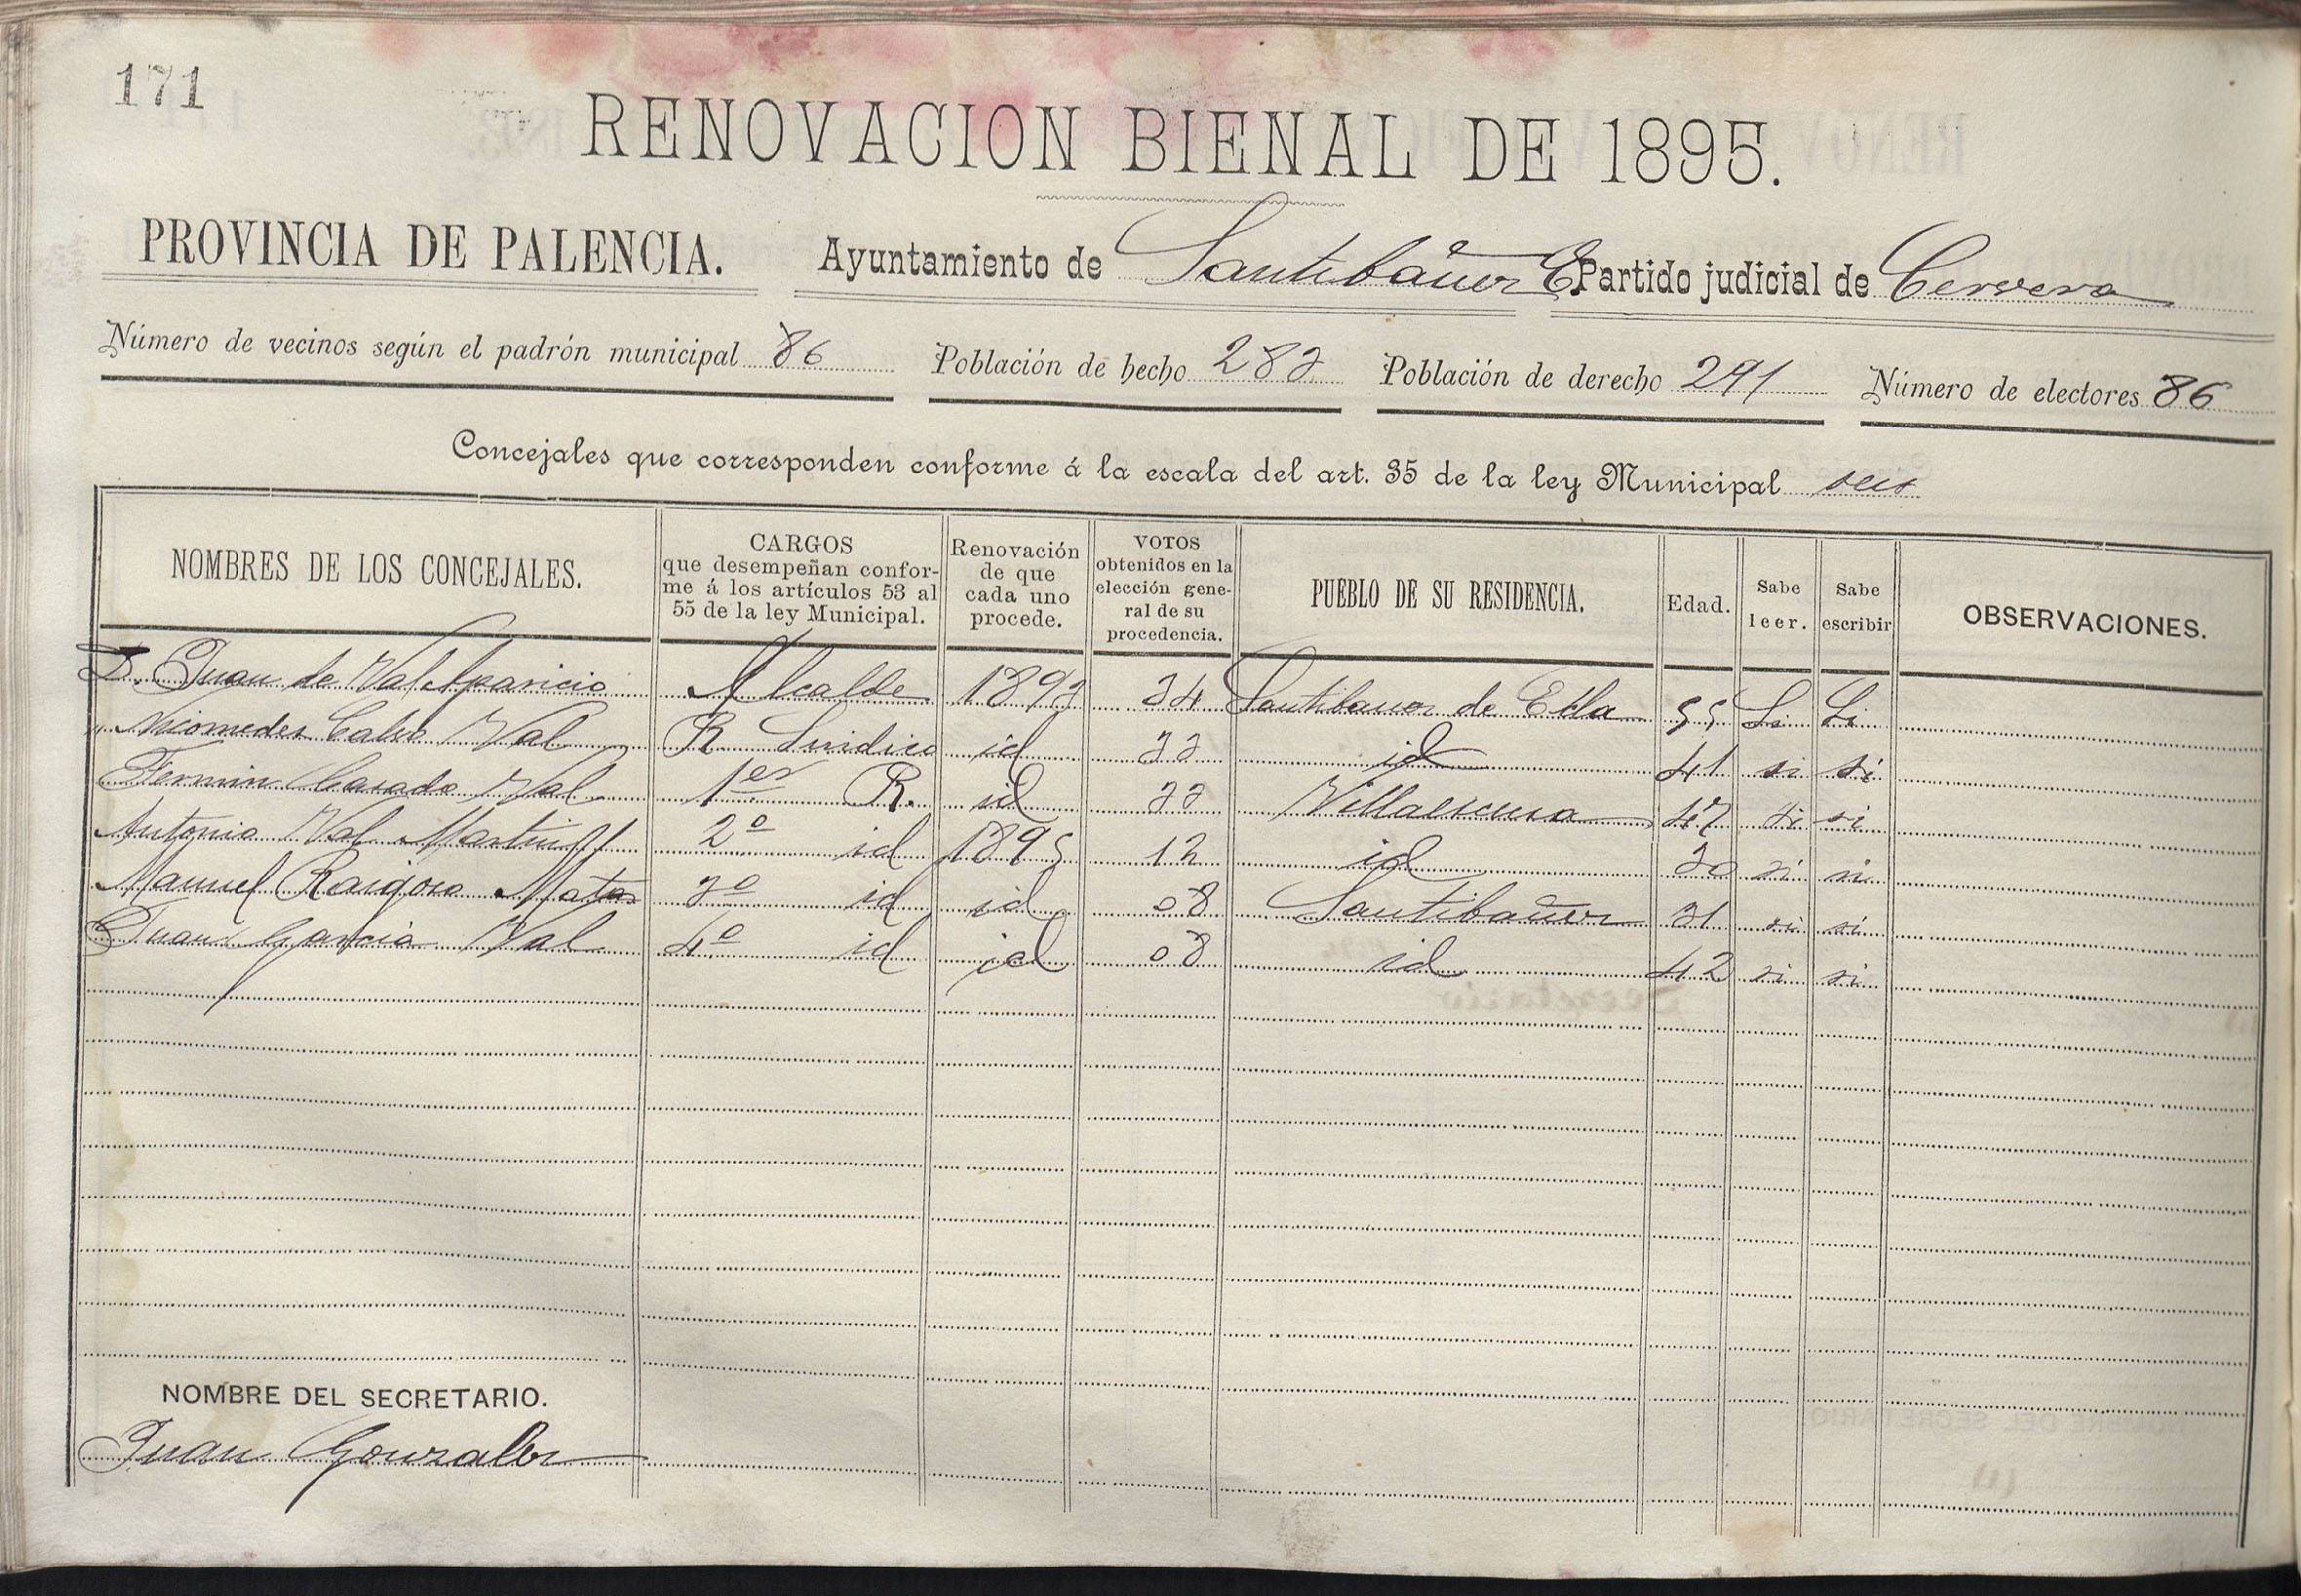 171
RENOVACION BIENAL DE 1895.
PROVINCIA DE PALENCIA. Ayuntamiento de Santibáñez E. Partido judicial de Cervera
Número de vecinos según el padrón municipal 86 Población de hecho 283 Población de derecho 291 Número de electores 86
Concejales que corresponden conforme á la escala del art. 35 de la ley Municipal seis
NOMBRES DE LOS CONCEJALES.
CARGOS
que desempeñan confor-
me á los artículos 53 al
55 de la ley Municipal.
Renovación
de que
cada uno
procede.
VOTOS
obtenidos en la
elección gene-
ral de su
procedencia.
PUEBLO DE SU RESIDENCIA.
Edad.
Sabe
leer.
Sabe
escribir
OBSERVACIONES.
D. Juan de Val Aparicio Alcalde 1893 34 Santibanez de Ecla 55 Si Si
" Nicomedes Calvo Val R. Sindico id 33 id 41 si si
Fermin Casado Val 1er R. id 33 Villaescusa 47 si si
Antonio Val Martin 2º id 1895 12 id 30 si si
Manuel Raigoso Mata 3º id id 08 Santibañez 31 si si
Juan Garcia Val 4º id id 08 id 42 si si
NOMBRE DEL SECRETARIO.
Juan Gonzalez